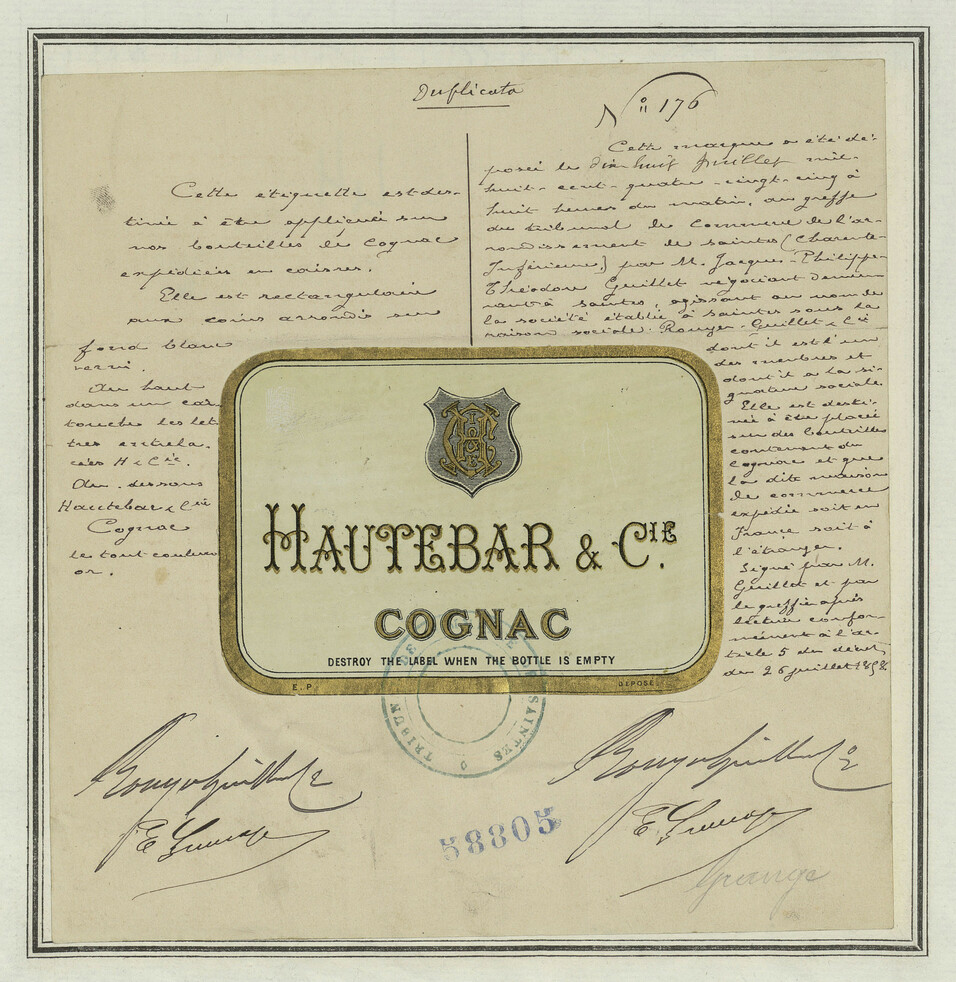 Duplicata
N° 176
Cette étiquette est des-
tinée à être appliquée sur
nos bouteilles de Cognac
expédiées en caisses.
Elle est rectangulaire
aux coins arrondis sur
fond blanc
verni.
Au haut
dans un car-
touche les let
tres entrela-
cées H & Cie.
Au-dessous
Hautebar & Cie
Cognac
le tout couleur
or.
Cette marque a été dé-
posée le dix huit Juillet mil-
huit-cent-quatre-vingt-cinq à
huit heures du matin, au greffe
du tribunal de Commerce de l'ar-
rondissement de Saintes (Charente-
Inférieure) par M. Jacques-Philippe-
Théodore Guillet négociant demeu-
rant à Saintes, agissant au nom de
la société établie à Saintes sous la
raison sociale: Rouyer-Guillet & Cie
dont il est l'un
des membres et
dont il a la si-
gnature sociale.
Elle est desti-
née à être placée
sur des bouteilles
contenant du
Cognac et que
la dite maison
de commerce
expédie soit en
France soit à
l'étranger.
Signé par M.
Guillet et par
le greffier après
lecture confor-
mément à l'ar-
ticle 5 du décret
du 26 juillet 1858
HAUTEBAR & CIE.
COGNAC
DESTROY THE LABEL WHEN THE BOTTLE IS EMPTY
E. P.
DÉPOSÉ
TRIBUN
SAINTES
Rouyer Guillet & Cie
Rouyer Guillet & Cie
58805
Grange